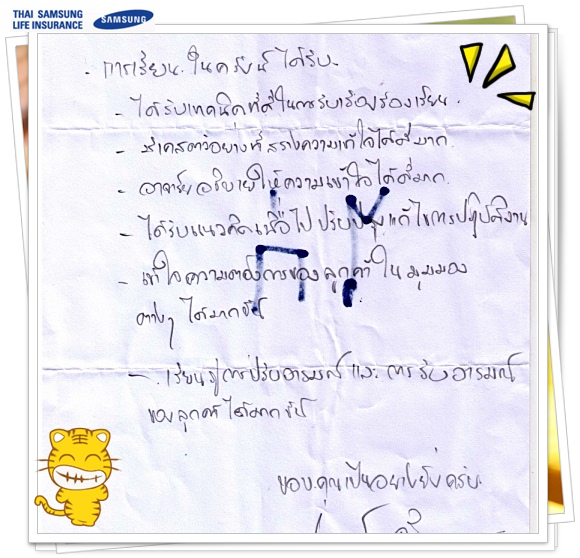 THAI SAMSUNG
LIFE INSURANCE
SAMSUNG
- การเรียนในครั้งนี้ ได้รับ
- ได้รับเทคนิคที่ดีในการรับเรื่องร้องเรียน
- มีเคสตัวอย่างที่สร้างความเข้าใจได้ดีมาก
- อาจารย์อธิบายให้ความเข้าใจได้ดีมาก
- ได้รับแนวคิดเพื่อไปปรับปรุงแก้ไขการปฏิบัติงาน
- เข้าใจความต้องการของลูกค้า ในมุมมอง
ต่างๆ ได้มากขึ้น
- เรียนรู้การปรับอารมณ์ และ การรับอารมณ์
ของลูกค้าได้มากขึ้น
ขอบคุณเป็นอย่างยิ่งครับ